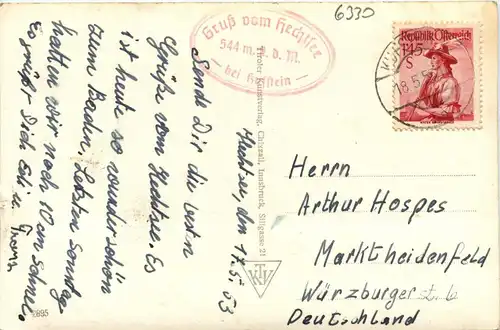 6330
Gruß vom Hechtsee
544 m. ü. d. M.
bei Kufstein
Republik Österreich
1.45
S
18.5.5
Hechtsee, den 17.5.53
Sende Dir die besten
Grüße vom Hechtsee. Es
ist heute so wunderschön
zum Baden, Letzten Sonntag
hatten wir noch 10 cm Schnee.
Es grüßt Dich Edi u.
Tiroler Kunstverlag, Chizzali, Innsbruck, Sillgasse 21
TKV
2895
Herrn
Arthur Hospes
Marktheidenfeld
Würzburgerst. 6
Deutschland